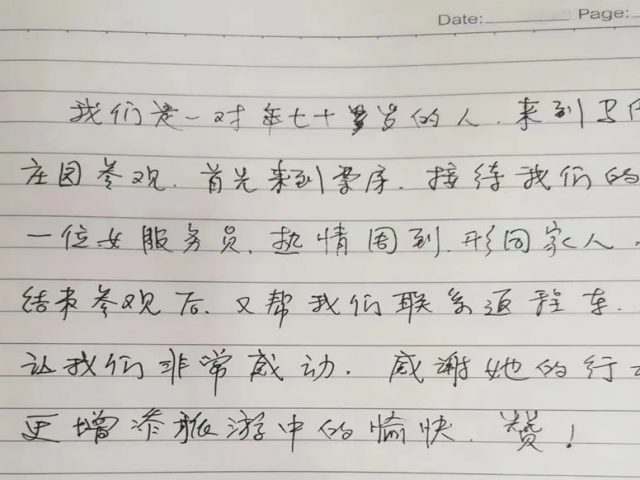 Date: Page:
我们是一对年七十岁的人.来到马
庄园参观.首先来到票房.接待我们的
一位女服务员.热情周到.形同家人.
结束参观后.又帮我们联系返程车.
让我们非常感动.感谢她的行
更增添旅游中的愉快.赞!